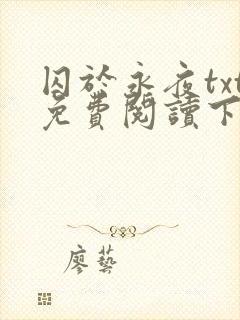 囚於永夜txt
免費閱讀下
廖藝